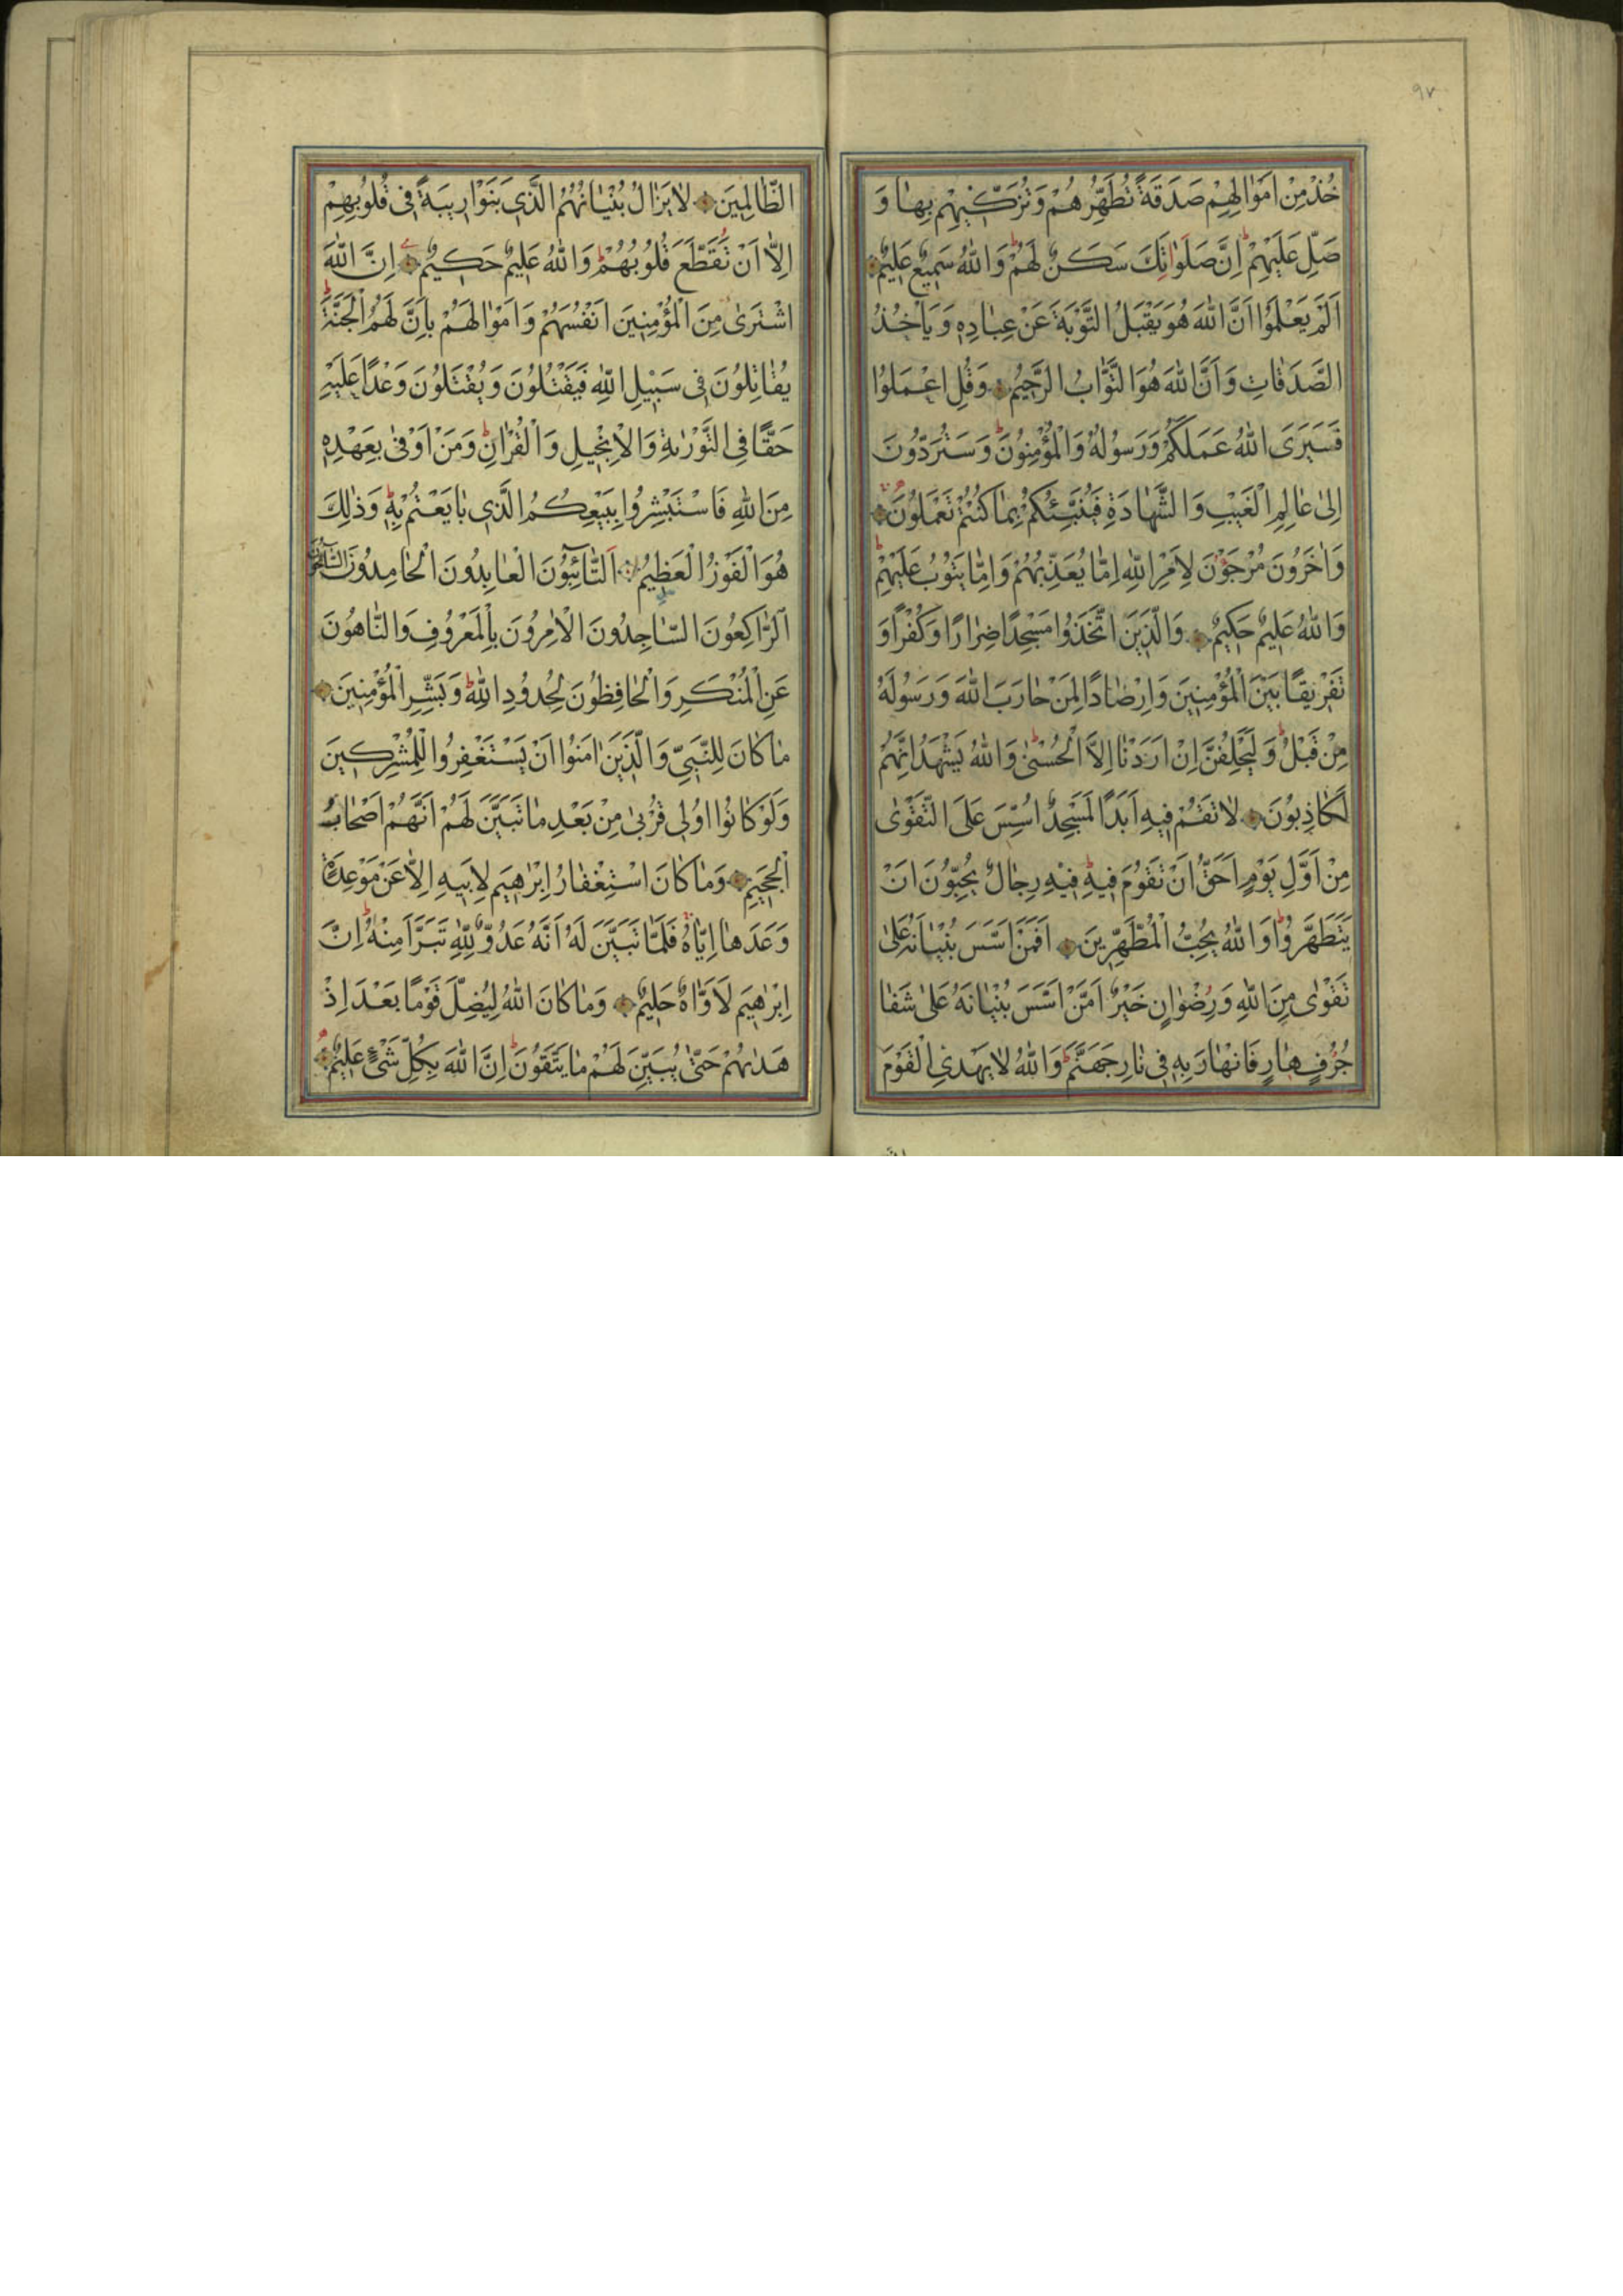 ٩٧
خُذْ مِنْ اَمْوٰالِهِمْ صَدَقَةً تُطَهِّرُهُمْ وَتُزَكّ۪يهِمْ بِهٰا وَ
صَلِّ عَلَيْهِمْ اِنَّ صَلَوٰاتَِكَ سَكَنٌ لَهُمْ وَاللّٰهُ سَم۪يعٌ عَل۪يمٌ
اَلَمْ يَعْلَمُوا اَنَّ اللّٰهَ هُوَ يَقْبَلُ التَّوْبَةَ عَنْ عِبٰادِه۪ وَيَأْخُذُ
الصَّدَقٰاتِ وَاَنَّ اللّٰهَ هُوَ التَّوّٰابُ الرَّح۪يمُ وَقُلِ اعْمَلُوا
فَسَيَرَى اللّٰهُ عَمَلَكُمْ وَرَسُولُهُ وَالْمُؤْمِنُونَ وَسَتُرَدُّونَ
اِلٰى عٰالِمِ الْغَيْبِ وَالشَّهٰادَةِ فَيُنَبِّئُكُمْ بِمٰا كُنْتُمْ تَعْمَلُونَ
وَاٰخَرُونَ مُرْجَوْنَ لِاَمْرِ اللّٰهِ اِمّٰا يُعَذِّبُهُمْ وَاِمّٰا يَتُوبُ عَلَيْهِمْ
وَاللّٰهُ عَل۪يمٌ حَك۪يمٌ وَالَّذ۪ينَ اتَّخَذُوا مَسْجِدًا ضِرٰارًا وَكُفْرًا وَ
تَفْر۪يقًا بَيْنَ الْمُؤْمِن۪ينَ وَاِرْصٰادًا لِمَنْ حٰارَبَ اللّٰهَ وَرَسُولَهُ
مِنْ قَبْلُ وَلَيَحْلِفُنَّ اِنْ اَرَدْنٰا اِلَّا الْحُسْنٰى وَاللّٰهُ يَشْهَدُ اِنَّهُمْ
لَكٰاذِبُونَ لٰا تَقُمْ ف۪يهِ اَبَدًا لَمَسْجِدٌ اُسِّسَ عَلَى التَّقْوٰى
مِنْ اَوَّلِ يَوْمٍ اَحَقُّ اَنْ تَقُومَ ف۪يهِ ف۪يهِ رِجٰالٌ يُحِبُّونَ اَنْ
يَتَطَهَّرُوا وَاللّٰهُ يُحِبُّ الْمُطَّهِّر۪ينَ اَفَمَنْ اَسَّسَ بُنْيٰانَهُ عَلٰى
تَقْوٰى مِنَ اللّٰهِ وَرِضْوٰانٍ خَيْرٌ اَمْ مَنْ اَسَّسَ بُنْيٰانَهُ عَلٰى شَفٰا
جُرُفٍ هٰارٍ فَانْهٰارَ بِه۪ ف۪ى نٰارِ جَهَنَّمَ وَاللّٰهُ لٰا يَهْدِى الْقَوْمَ
الظّٰالِم۪ينَ لٰا يَزٰالُ بُنْيٰانُهُمُ الَّذ۪ى بَنَوْا ر۪يبَةً ف۪ى قُلُوبِهِمْ
اِلّٰا اَنْ تَقَطَّعَ قُلُوبُهُمْ وَاللّٰهُ عَل۪يمٌ حَك۪يمٌ اِنَّ اللّٰهَ
اشْتَرٰى مِنَ الْمُؤْمِن۪ينَ اَنْفُسَهُمْ وَاَمْوٰالَهُمْ بِاَنَّ لَهُمُ الْجَنَّةَ
يُقٰاتِلُونَ ف۪ى سَب۪يلِ اللّٰهِ فَيَقْتُلُونَ وَيُقْتَلُونَ وَعْدًا عَلَيْهِ
حَقًّا فِى التَّوْرٰيةِ وَالْاِنْج۪يلِ وَالْقُرْاٰنِ وَمَنْ اَوْفٰى بِعَهْدِه۪
مِنَ اللّٰهِ فَاسْتَبْشِرُوا بِبَيْعِكُمُ الَّذ۪ى بٰايَعْتُمْ بِه۪ وَذٰلِكَ
هُوَ الْفَوْزُ الْعَظ۪يمُ اَلتّٰآئِبُونَ الْعٰابِدُونَ الْحٰامِدُونَ السّٰآئِحُونَ
الرّٰاكِعُونَ السّٰاجِدُونَ الْاٰمِرُونَ بِالْمَعْرُوفِ وَالنّٰاهُونَ
عَنِ الْمُنْكَرِ وَالْحٰافِظُونَ لِحُدُودِ اللّٰهِ وَبَشِّرِ الْمُؤْمِن۪ينَ
مٰا كٰانَ لِلنَّبِىِّ وَالَّذ۪ينَ اٰمَنُوا اَنْ يَسْتَغْفِرُوا لِلْمُشْرِك۪ينَ
وَلَوْ كٰانُوا اُول۪ى قُرْبٰى مِنْ بَعْدِ مٰا تَبَيَّنَ لَهُمْ اَنَّهُمْ اَصْحٰابُ
الْجَح۪يمِ وَمٰا كٰانَ اسْتِغْفٰارُ اِبْرٰه۪يمَ لِاَب۪يهِ اِلّٰا عَنْ مَوْعِدَةٍ
وَعَدَهٰا اِيّٰاهُ فَلَمّٰا تَبَيَّنَ لَهُ اَنَّهُ عَدُوٌّ لِلّٰهِ تَبَرَّاَ مِنْهُ اِنَّ
اِبْرٰه۪يمَ لَاَوّٰاهٌ حَل۪يمٌ وَمٰا كٰانَ اللّٰهُ لِيُضِلَّ قَوْمًا بَعْدَ اِذْ
هَدٰيهُمْ حَتّٰى يُبَيِّنَ لَهُمْ مٰا يَتَّقُونَ اِنَّ اللّٰهَ بِكُلِّ شَىْءٍ عَل۪يمٌ